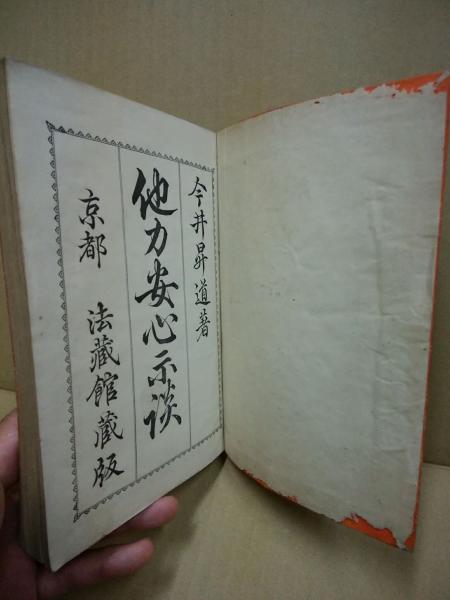 今井昇道著
他力安心示談
京都 法藏館藏版